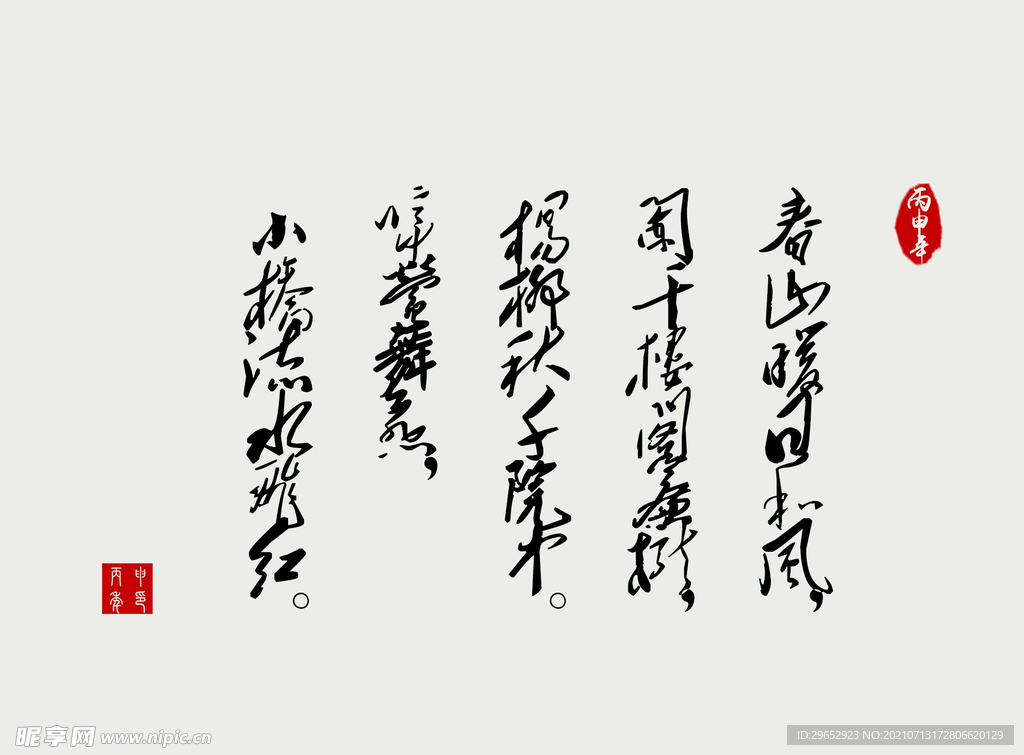 丙申年
春山暖日和風，
闌干樓閣簾櫳，
楊柳秋千院中。
啼鶯舞燕，
小橋流水飛紅。
申印
丙年
昵享网 www.nipic.cn
ID:29652923 NO:20210713172806620129